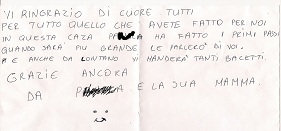 VI RINGRAZIO DI CUORE TUTTI
PER TUTTO QUELLO CHE AVETE FATTO PER NOI
IN QUESTA CAZA HA FATTO I PRIMI PASSI
QUANDO SARA' PIU' GRANDE LE PARLERO' DI VOI.
E ANCHE DA LONTANO VI MANDERA' TANTI BACETTI.
GRAZIE ANCORA
DA E LA SUA MAMMA.